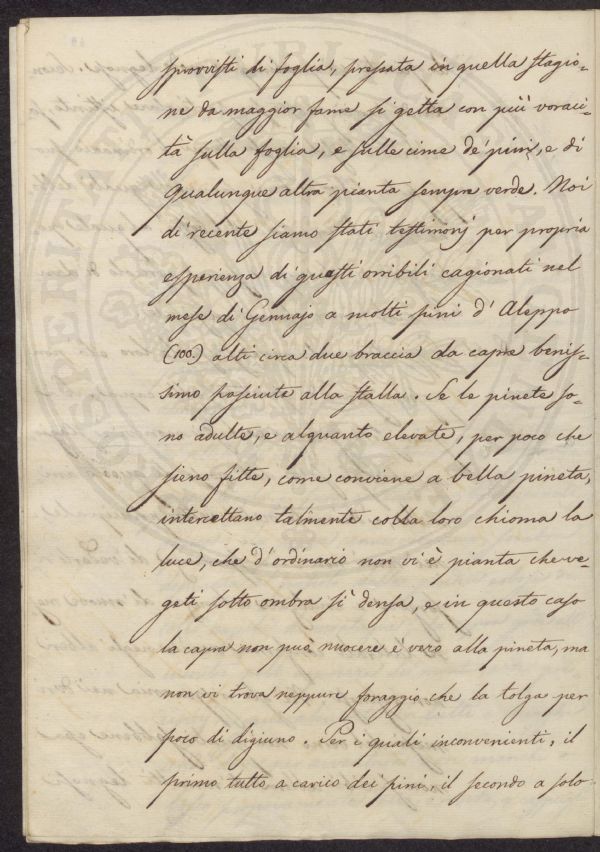 sprovvisti di foglia, pressata in quella stagio-
ne da maggior fame si getta con più voraci-
tà sulla foglia, e sulle cime de' pini, e di
qualunque altra pianta sempre verde. Noi
di recente siamo stati testimonj per propria
esperienza di guasti orribili cagionati nel
mese di Gennajo a molti pini d'Aleppo
(100.) alti circa due braccia da capre benis-
simo pasciute alla stalla. Se le pinete so-
no adulte, e alquanto elevate, per poco che
sieno fitte, come conviene a bella pineta,
intercettano talmente colla loro chioma la
luce, che d'ordinario non vi è pianta che ve-
geti sotto ombra sì densa, e in questo caso
la capra non può nuocere è vero alla pineta, ma
non vi trova neppure foraggio che la tolga per
poco di digiuno. Per i quali inconvenienti, il
primo tutto a carico dei pini, il secondo a solo